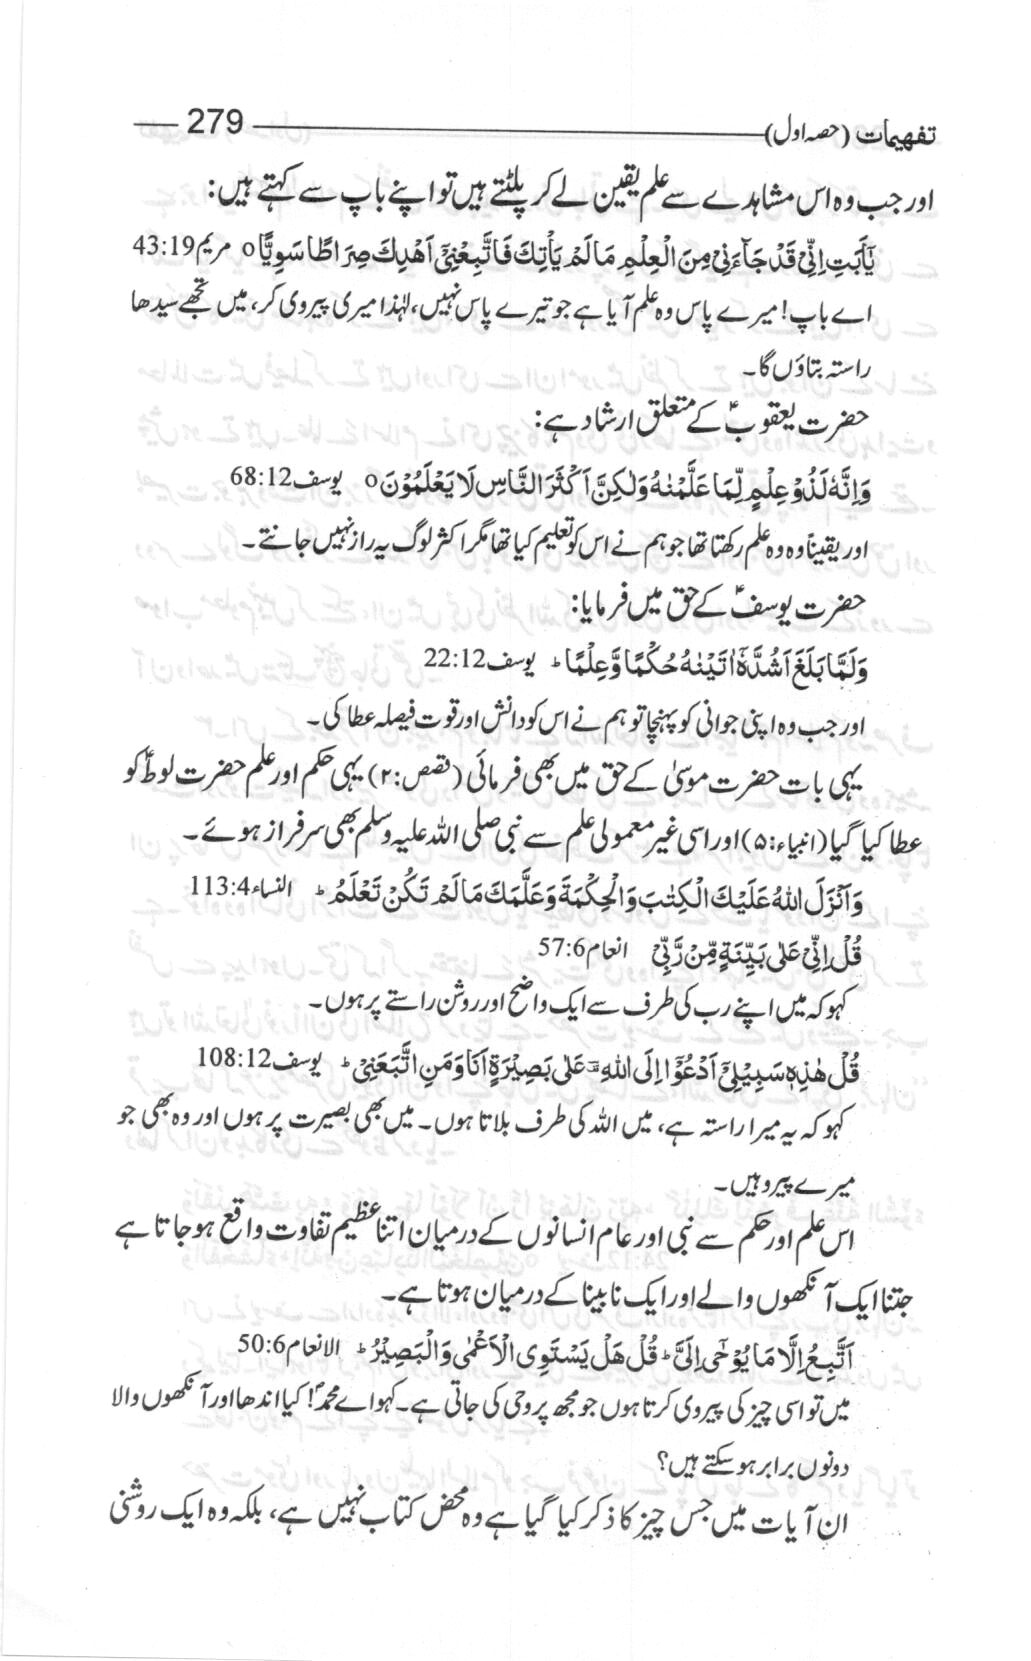 تفہیمات (حصہ اول) 279
اور جب وہ اس مشاہدے سے علم یقین لے کر پلٹتے ہیں تو اپنے باپ سے کہتے ہیں:
يٰٓاَبَتِ اِنِّىْ قَدْ جَآءَنِىْ مِنَ الْعِلْمِ مَا لَمْ يَاْتِكَ فَاتَّبِعْنِىْٓ اَهْدِكَ صِرَاطًا سَوِيًّا o مریم 43:19
اے باپ! میرے پاس وہ علم آیا ہے جو تیرے پاس نہیں، لہٰذا میری پیروی کر، میں تجھے سیدھا
راستہ بتاؤں گا۔
حضرت یعقوبؑ کے متعلق ارشاد ہے:
وَاِنَّهٗ لَذُوْ عِلْمٍ لِّمَا عَلَّمْنٰهُ وَلٰكِنَّ اَكْثَرَ النَّاسِ لَا يَعْلَمُوْنَ o یوسف 68:12
اور یقیناً وہ وہ علم رکھتا تھا جو ہم نے اس کو تعلیم کیا تھا مگر اکثر لوگ یہ راز نہیں جانتے۔
حضرت یوسفؑ کے حق میں فرمایا:
وَلَمَّا بَلَغَ اَشُدَّهٗٓ اٰتَيْنٰهُ حُكْمًا وَّعِلْمًا ؕ یوسف 22:12
اور جب وہ اپنی جوانی کو پہنچا تو ہم نے اس کو دانش اور قوت فیصلہ عطا کی۔
یہی بات حضرت موسیٰ کے حق میں بھی فرمائی (قصص:۲) یہی حکم اور علم حضرت لوطؑ کو
عطا کیا گیا (انبیاء:۵) اور اسی غیر معمولی علم سے نبی صلی اللہ علیہ وسلم بھی سرفراز ہوئے۔
وَاَنْزَلَ اللّٰهُ عَلَيْكَ الْكِتٰبَ وَالْحِكْمَةَ وَعَلَّمَكَ مَا لَمْ تَكُنْ تَعْلَمُ ؕ النساء 113:4
قُلْ اِنِّىْ عَلٰى بَيِّنَةٍ مِّنْ رَّبِّىْ انعام 57:6
کہو کہ میں اپنے رب کی طرف سے ایک واضح اور روشن راستے پر ہوں۔
قُلْ هٰذِهٖ سَبِيْلِىْٓ اَدْعُوْٓا اِلَى اللّٰهِ ࣞ عَلٰى بَصِيْرَةٍ اَنَا وَمَنِ اتَّبَعَنِىْ ؕ یوسف 108:12
کہو کہ یہ میرا راستہ ہے، میں اللہ کی طرف بلاتا ہوں۔ میں بھی بصیرت پر ہوں اور وہ بھی جو
میرے پیرو ہیں۔
اس علم اور حکم سے نبی اور عام انسانوں کے درمیان اتنا عظیم تفاوت واقع ہو جاتا ہے
جتنا ایک آنکھوں والے اور ایک نابینا کے درمیان ہوتا ہے۔
اَتَّبِعُ اِلَّا مَا يُوْحٰٓى اِلَىَّ ؕ قُلْ هَلْ يَسْتَوِى الْاَعْمٰى وَالْبَصِيْرُ ؕ الانعام 50:6
میں تو اسی چیز کی پیروی کرتا ہوں جو مجھ پر وحی کی جاتی ہے۔ کہو اے محمدؐ! کیا اندھا اور آنکھوں والا
دونوں برابر ہو سکتے ہیں؟
ان آیات میں جس چیز کا ذکر کیا گیا ہے وہ محض کتاب نہیں ہے، بلکہ وہ ایک روشنی